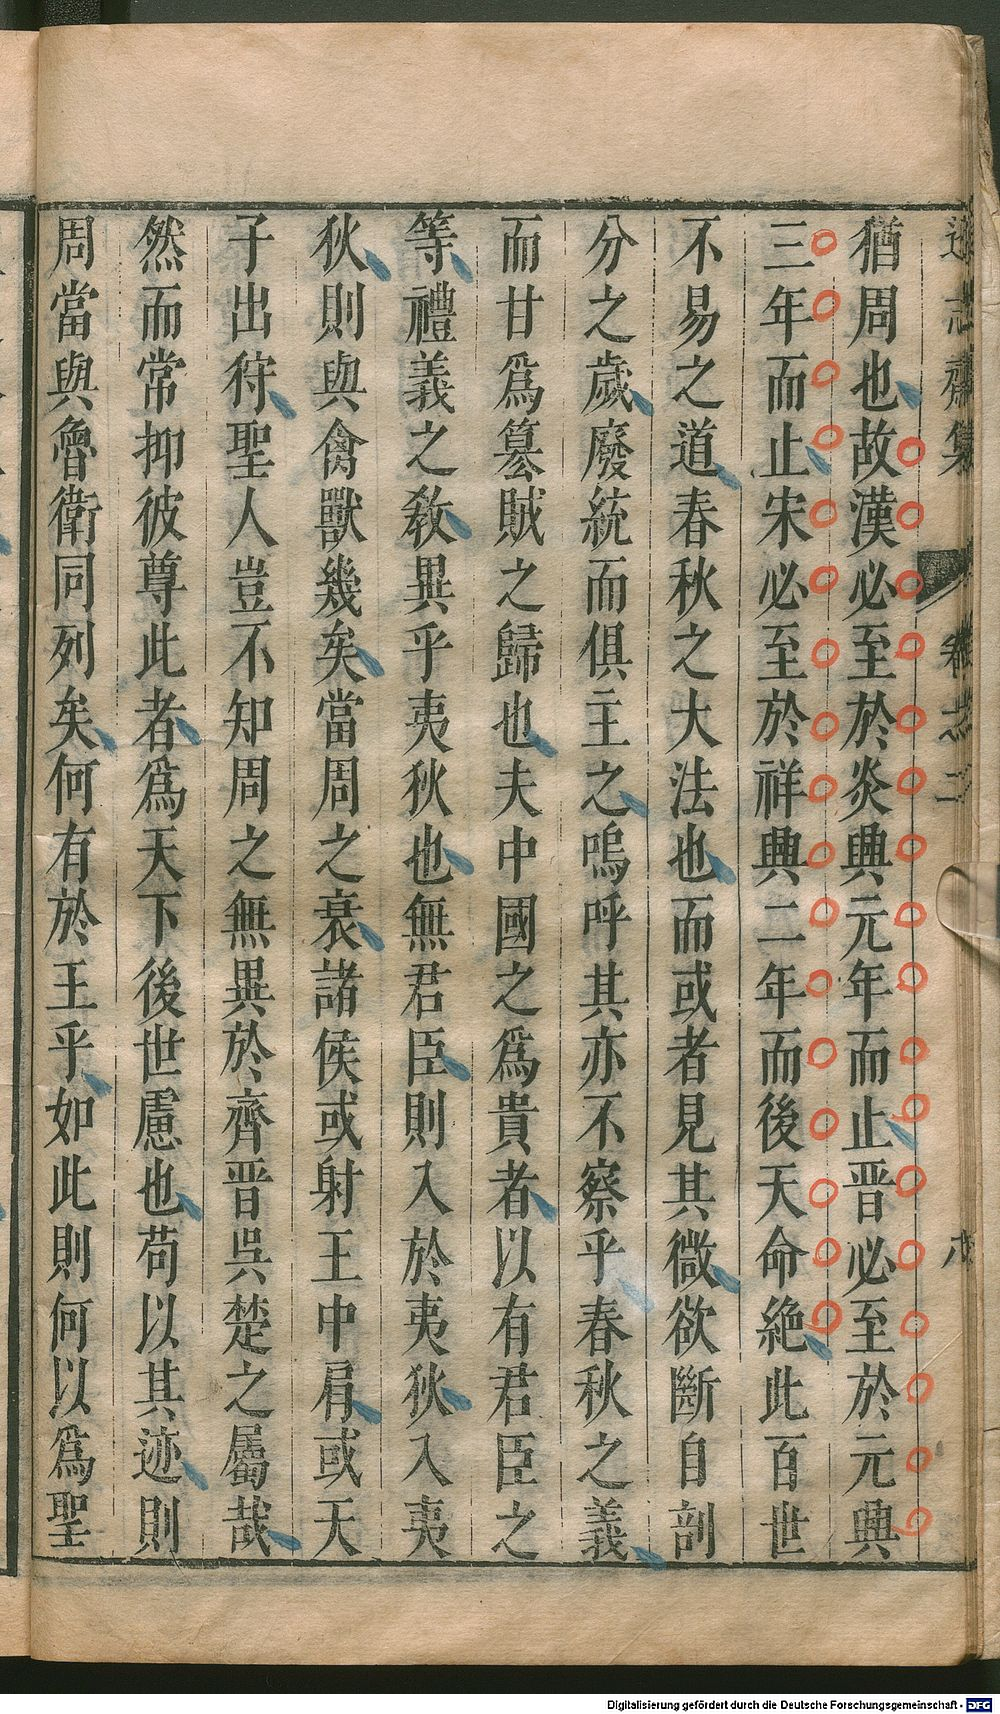 遜志齋集 卷之二 六
猶周也故漢必至於炎興元年而止晉必至於元興
三年而止宋必至於祥興二年而後天命絶此百世
不易之道春秋之大法也而或者見其微欲斷自剖
分之歲廢統而俱主之嗚呼其亦不察乎春秋之義
而甘爲簒賊之歸也夫中國之爲貴者以有君臣之
等禮義之敎異乎夷狄也無君臣則入於夷狄入夷
狄則與禽獸幾矣當周之衰諸侯或射王中肩或天
子出狩聖人豈不知周之無異於齊晉吳楚之屬哉
然而常抑彼尊此者爲天下後世慮也苟以其迹則
周當與魯衛同列矣何有於王乎如此則何以爲聖
Digitalisierung gefördert durch die Deutsche Forschungsgemeinschaft - DFG